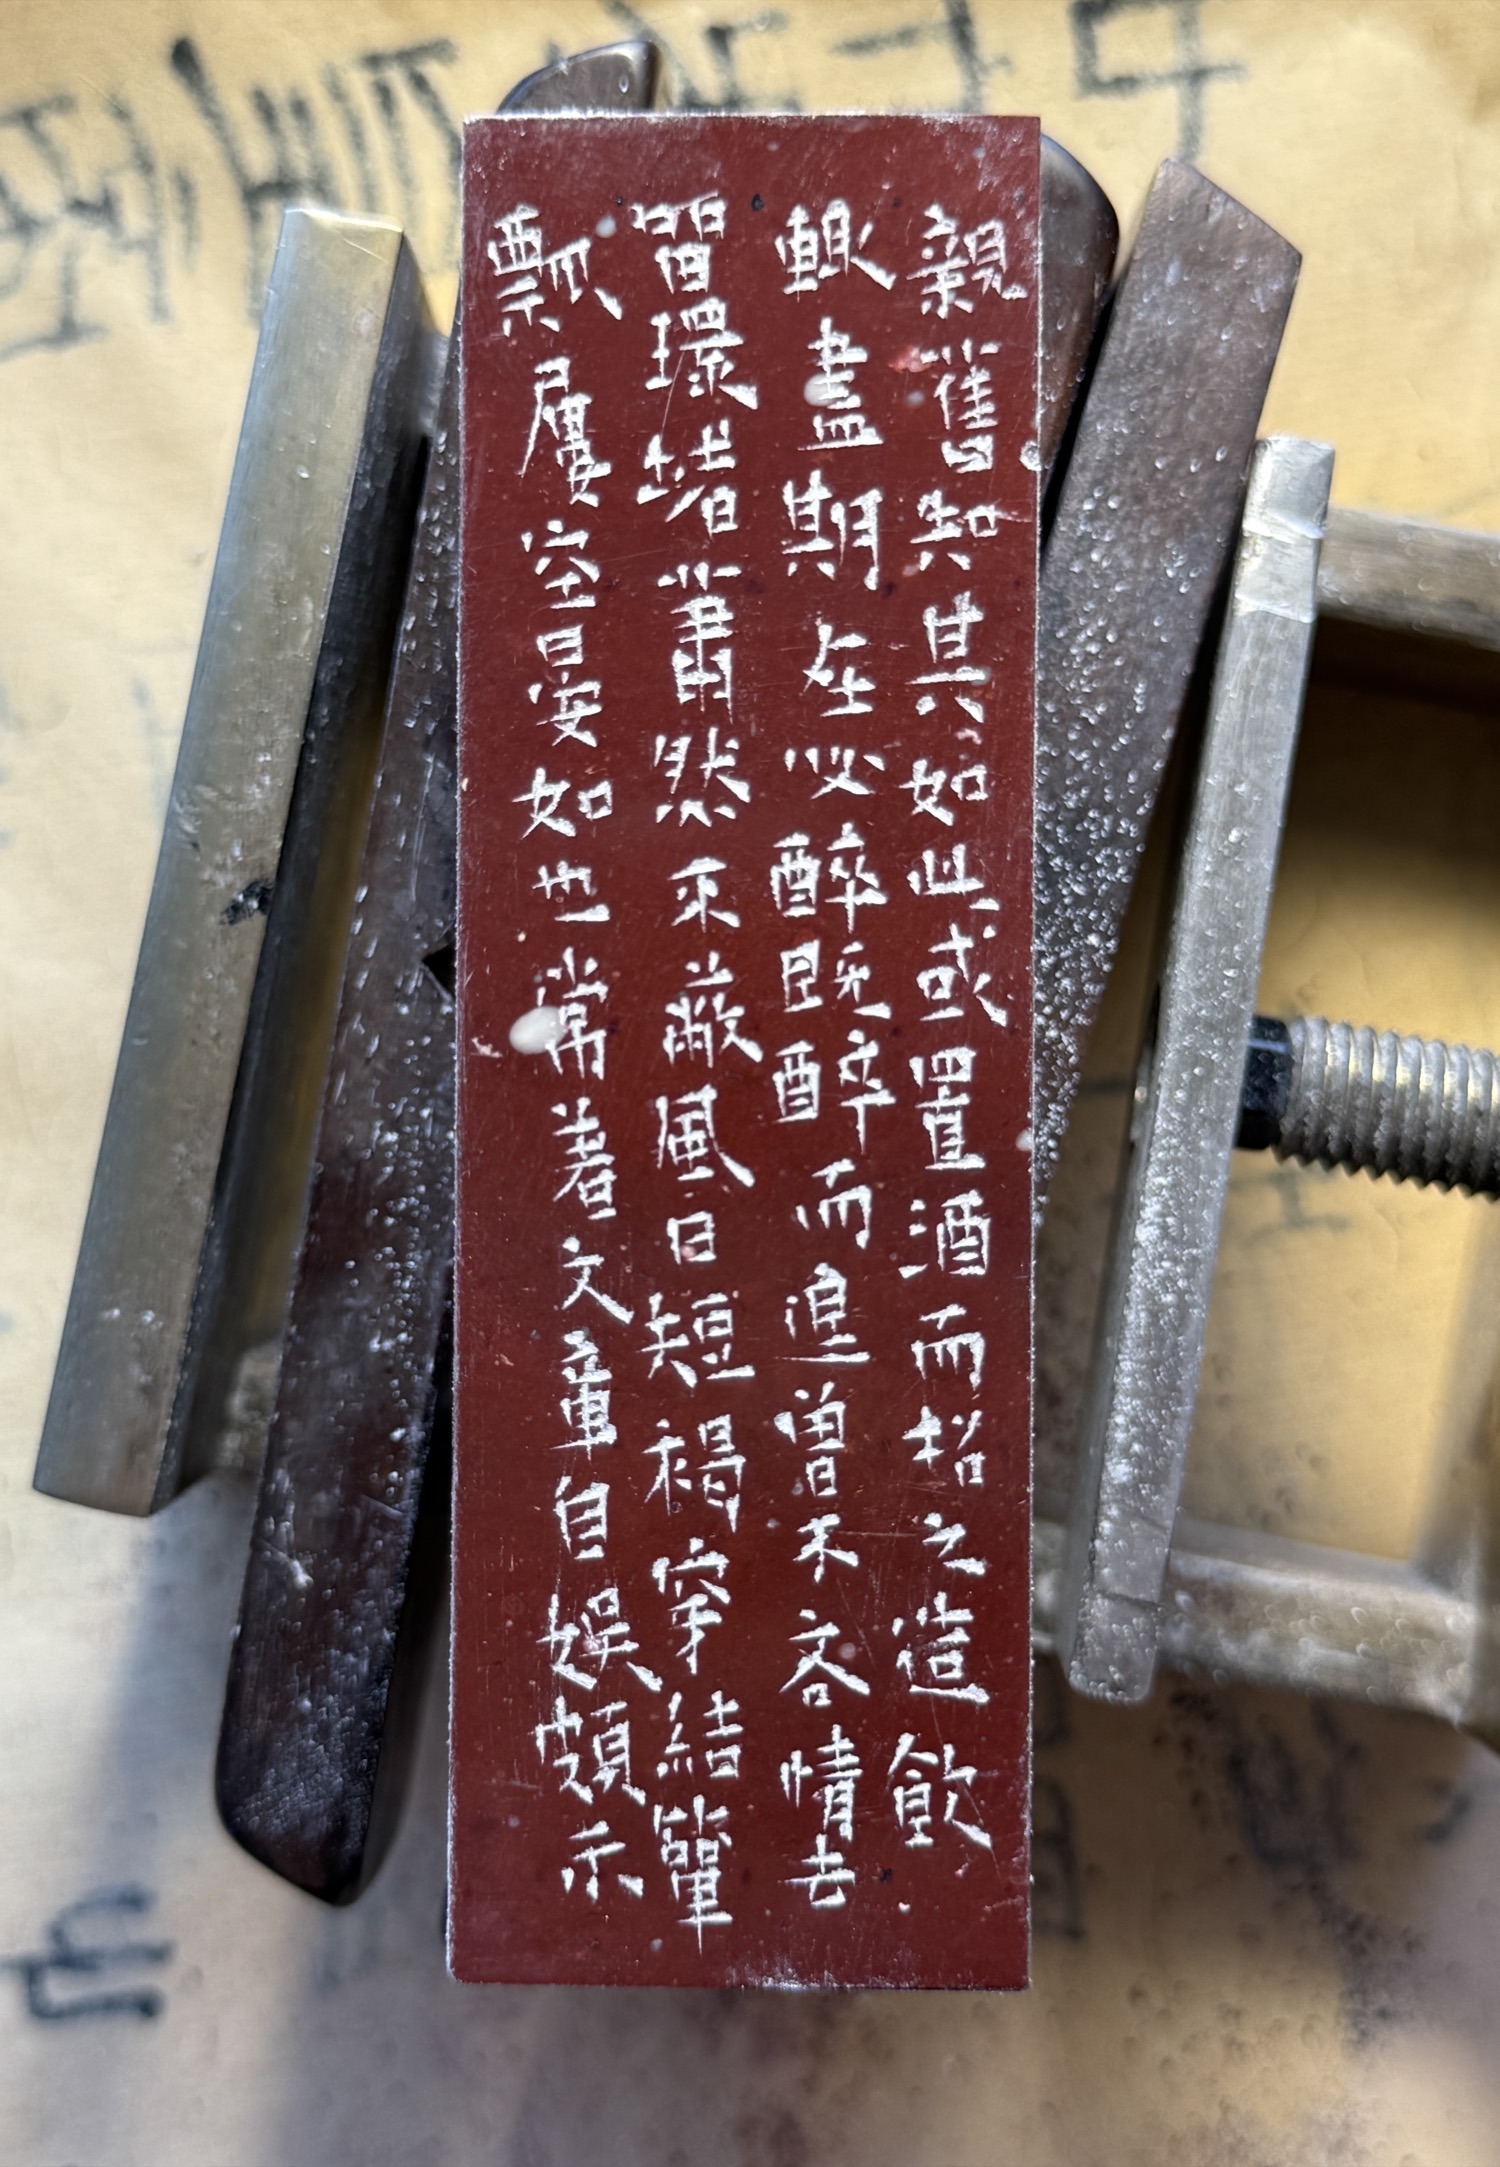 親舊知其如此或置酒而招之造飲
輒盡期在必醉既醉而退曾不吝情去
留環堵蕭然不蔽風日短褐穿結簞
瓢屢空晏如也常著文章自娛頗示